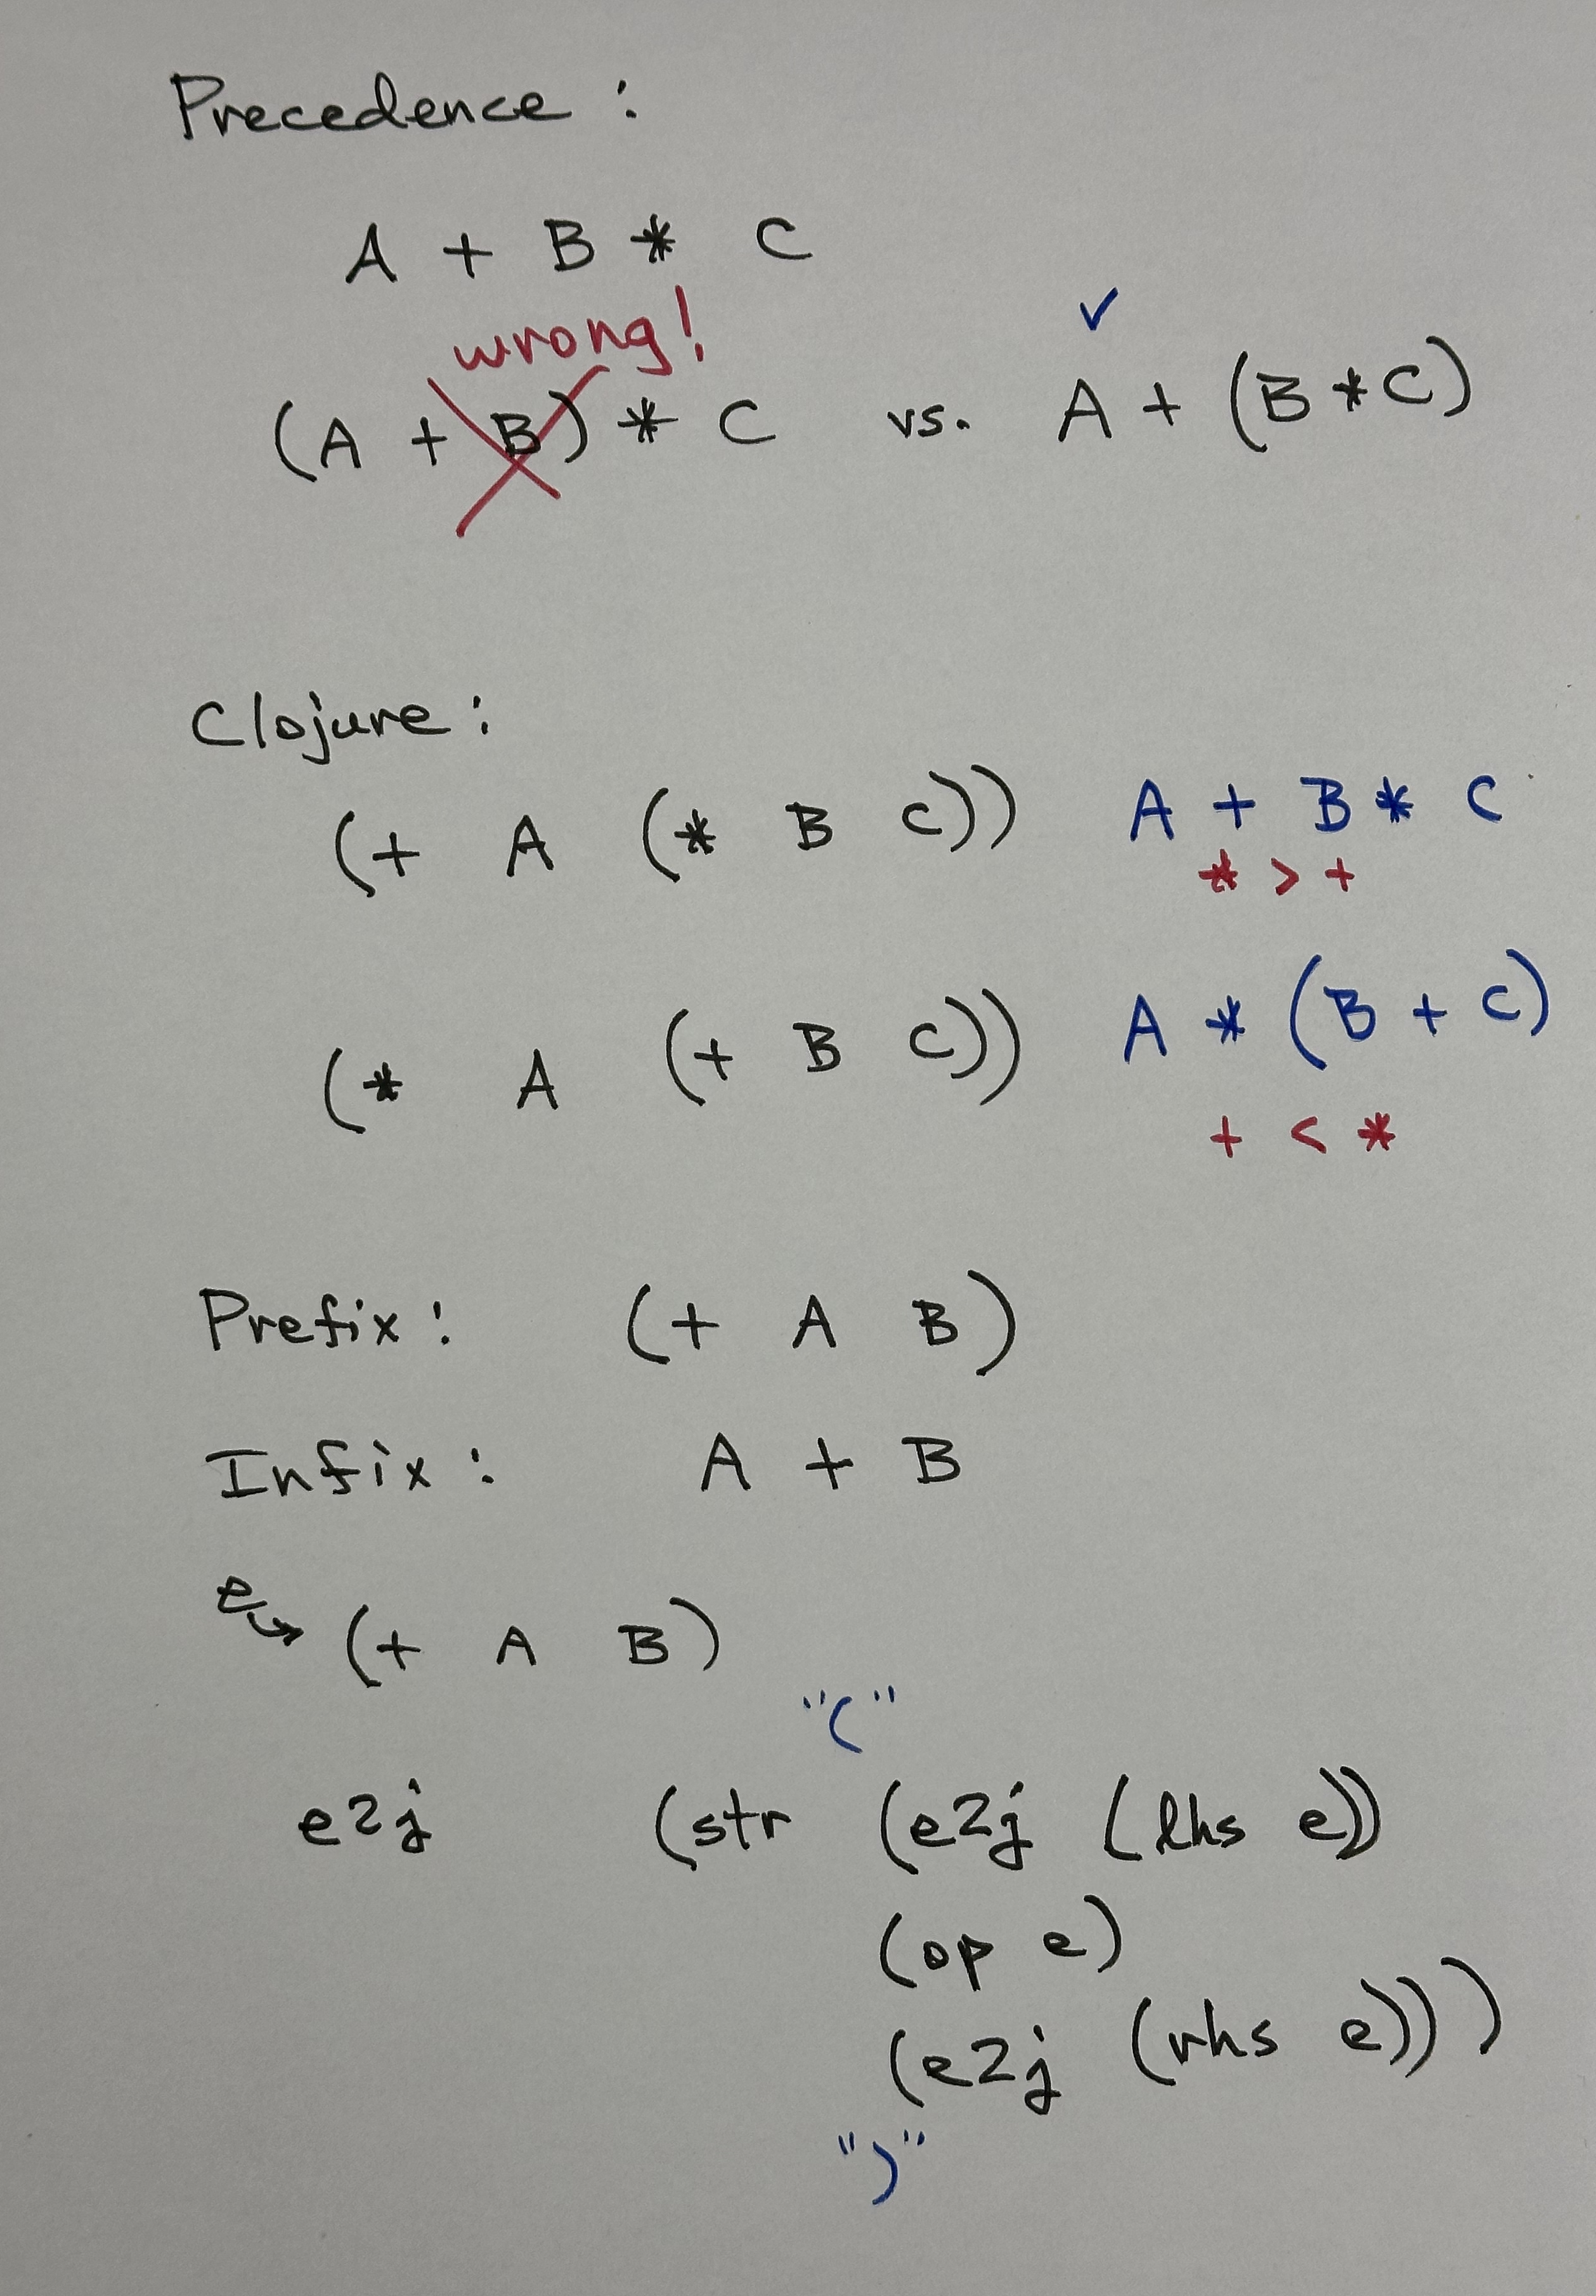 Precedence :
A + B * C
wrong! ✓
(A + B) * C vs. A + (B * C)
Clojure :
(+ A (* B C)) A + B * C
* > +
(* A (+ B C)) A * (B + C)
+ < *
Prefix : (+ A B)
Infix : A + B
e → (+ A B)
"("
e2j (str (e2j (lhs e))
(op e)
(e2j (rhs e)))
")"